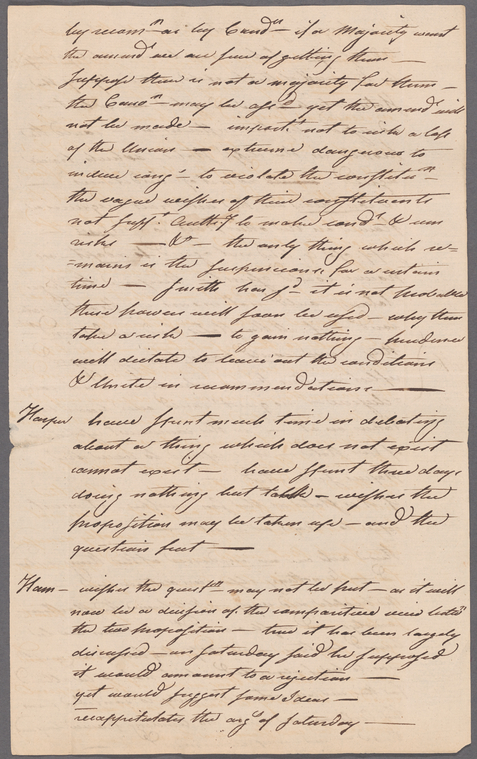 by recomn as by Condns – if a Majority want
the amendts are are sure of getting them –
suppose there is not a majority for them –
the Conn – may be – yet the amendts will
not be made – import.t not to risk a loss
of the Union – extreme dangerous to
induce cong – to violate the constitun –
the vague wishes of their constituents
not suff.t Authy to make cond.s & run
risks — &c – the only thing which re=
=mains is the suspensions for a certain
time — Smith has s.d – it is not probable
these powers will soon be used – why then
take a risk — to gain nothing – prudence
will dictate to leave out the conditions
& Unite in recommendations —
Harper have spent much time in debating
about a thing which does not exist
cannot exist – have spent three days
doing nothing but talk – wishes the
proposition may be taken up – and the
question put —
Ham – wishes the questn – may not be put – as it will
now be a division of the comparitive view betn
the two proposition – true it has been largely
discussed – on Saturday said he supposed
it would amount to a rejection —
yet would suggest some Ideas —
recappitulates the args of Saturday —